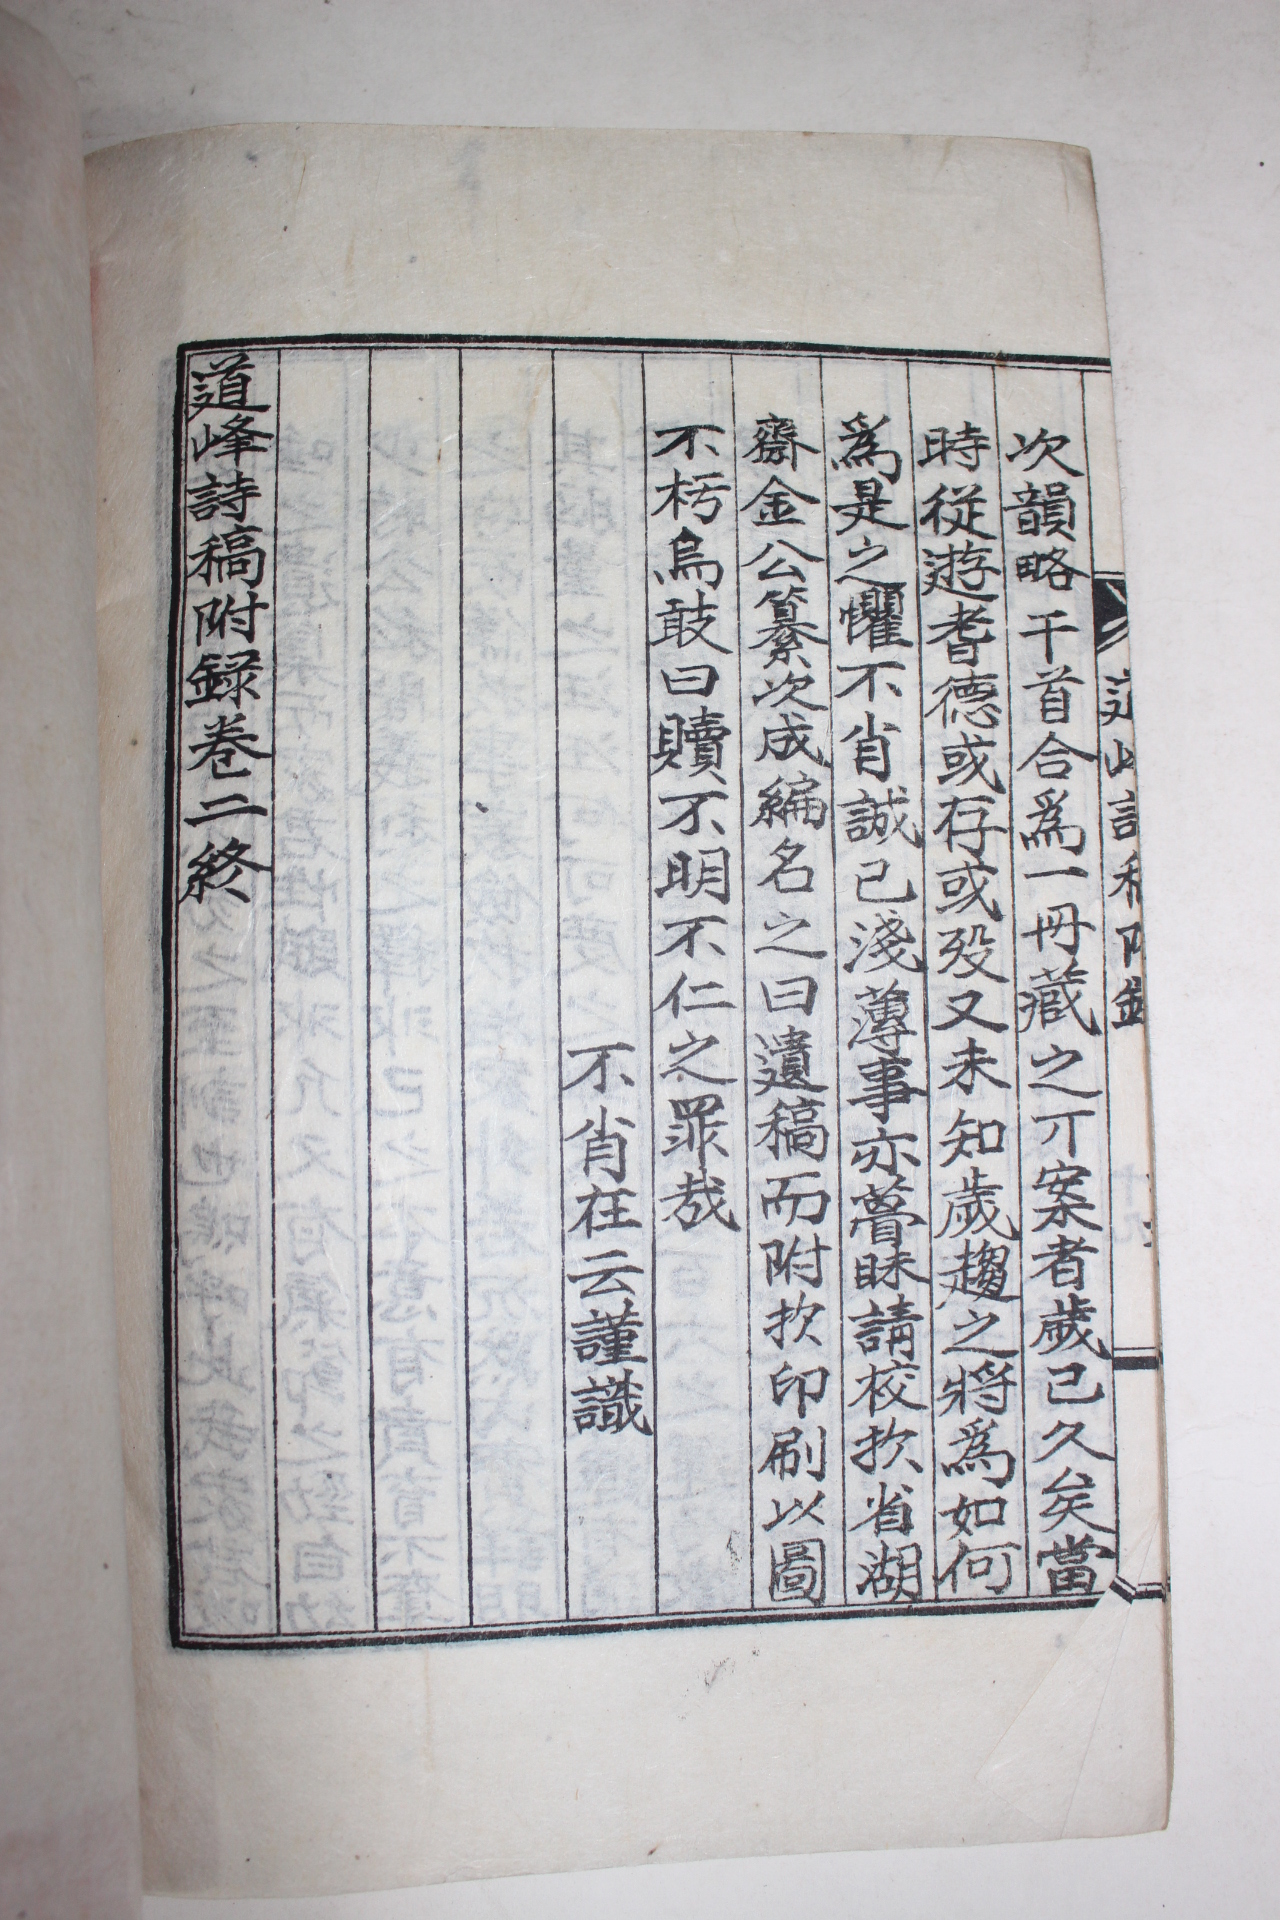 次韻略干首合爲一冊藏之丌案者歲已久矣當
時從遊耆德或存或歿又未知歲趨之將爲如何
爲是之懼不肖誠已淺薄事亦瞢昧請校扵省湖
齋金公纂次成編名之曰遺稿而附扵印刷以圖
不朽烏敢曰贖不明不仁之罪哉
不肖在云謹識
道峰詩稿附録卷二終